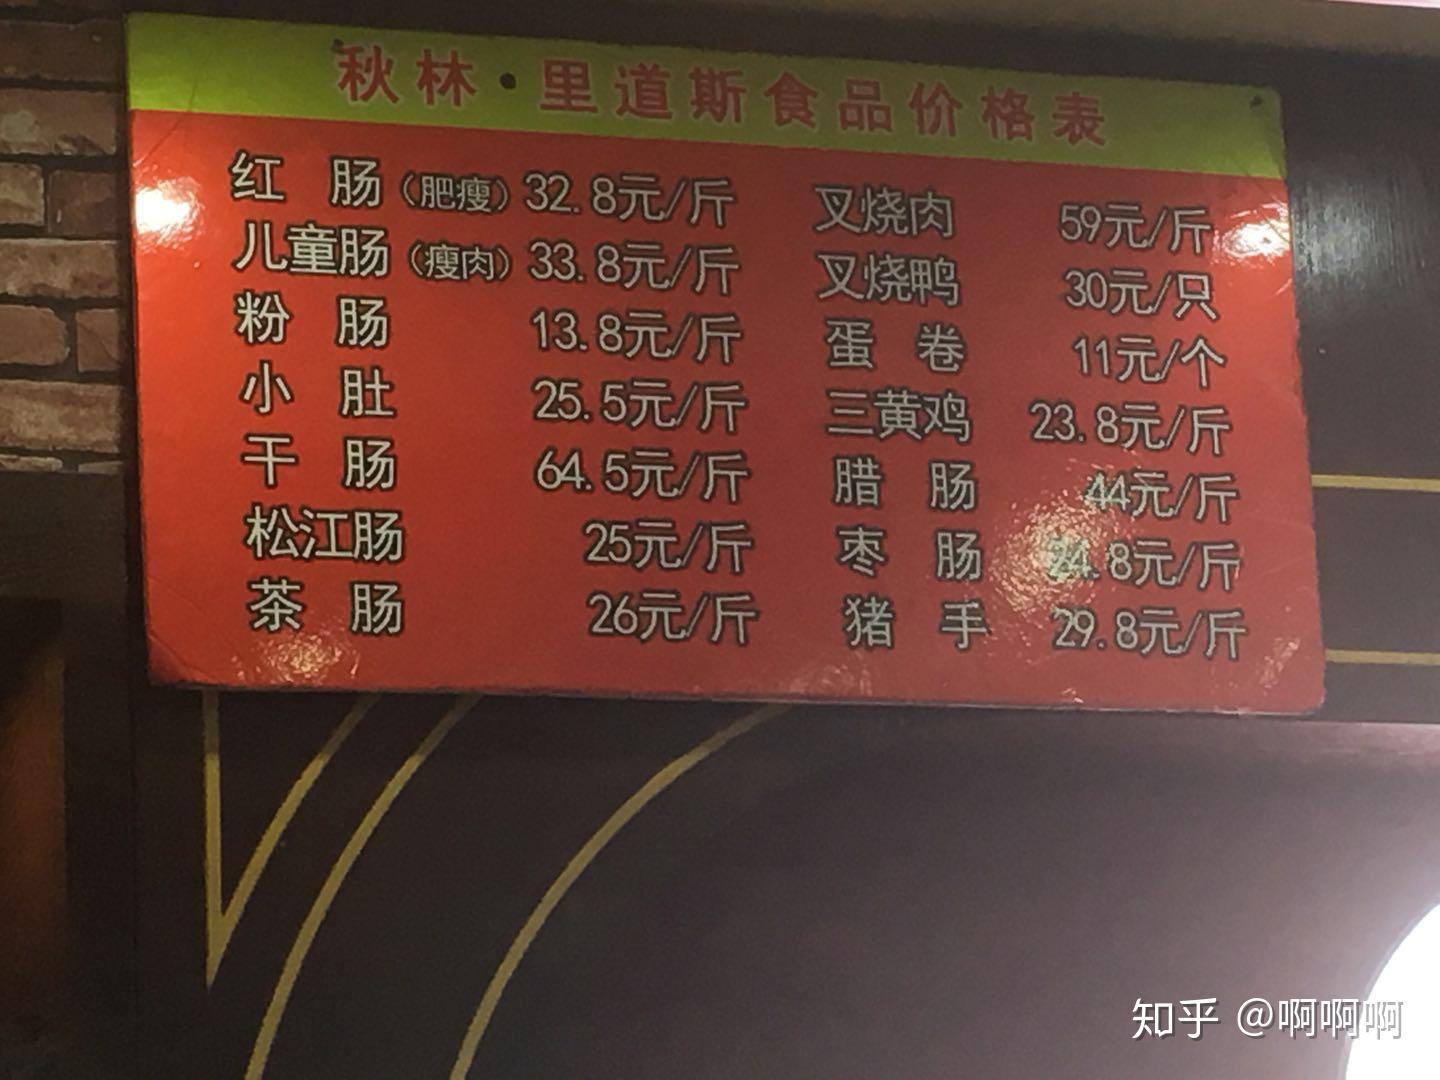 秋林·里道斯食品价格表
红 肠（肥瘦）32.8元/斤
儿童肠（瘦肉）33.8元/斤
粉 肠 13.8元/斤
小 肚 25.5元/斤
干 肠 64.5元/斤
松江肠 25元/斤
茶 肠 26元/斤
叉烧肉 59元/斤
叉烧鸭 30元/只
蛋 卷 11元/个
三黄鸡 23.8元/斤
腊 肠 44元/斤
枣 肠 24.8元/斤
猪 手 29.8元/斤
知乎 @啊啊啊